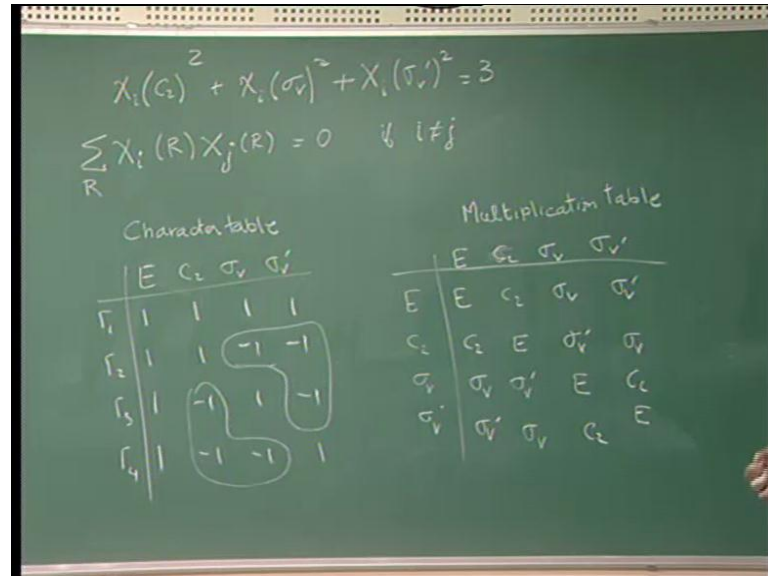 χᵢ(C₂)² + χᵢ(σᵥ)² + χᵢ(σᵥ')² = 3
∑_R χᵢ(R) χⱼ(R) = 0 if i≠j
Character table
E C₂ σᵥ σᵥ'
Γ₁ 1 1 1 1
Γ₂ 1 1 -1 -1
Γ₃ 1 -1 1 -1
Γ₄ 1 -1 -1 1
Multiplication table
E C₂ σᵥ σᵥ'
E E C₂ σᵥ σᵥ'
C₂ C₂ E σᵥ' σᵥ
σᵥ σᵥ σᵥ' E C₂
σᵥ' σᵥ' σᵥ C₂ E